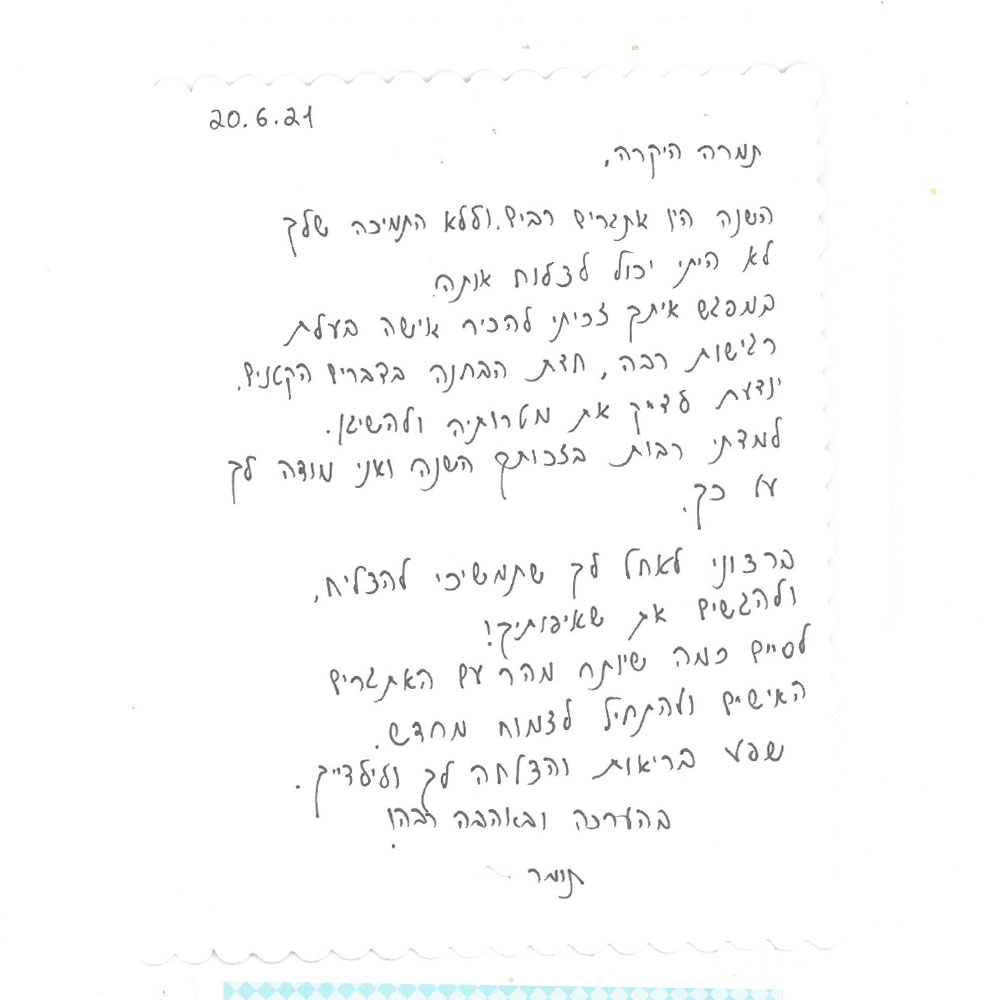 20.6.21
תמרה היקרה,
השנה היו אתגרים רבים. וללא התמיכה שלך
לא הייתי יכול לצלוח אותה.
במפגש איתך זכיתי להכיר אישה בעלת
רגישות רבה, חדת הבחנה בדברים הקטנים.
יודעת לדייק את מטרותיה ולהשיגן.
למדתי רבות בזכותך השנה ואני מודה לך
על כך.
ברצוני לאחל לך שתמשיכי להצליח,
ולהגשים את שאיפותיך!
לסיים כמה שיותר מהר עם האתגרים
האישיים ולהתחיל לצמוח מחדש.
שפע בריאות והצלחה לך ולילדייך.
בהערכה ובאהבה רבה!
תומר